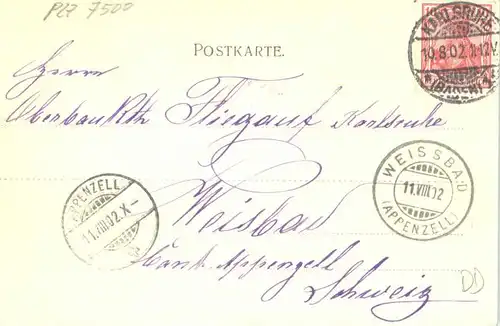 PLZ 7500
KARLSRUHE
10.8.02.11-12V.
(BADEN)
POSTKARTE.
Herrn
Oberbaurth Fliegauf Karlsruhe
WEISSBAD
11.VIII.02
(APPENZELL)
APPENZELL
11.VIII.02.X-
Weisbad
Cant. Appenzell
Schweiz
DD